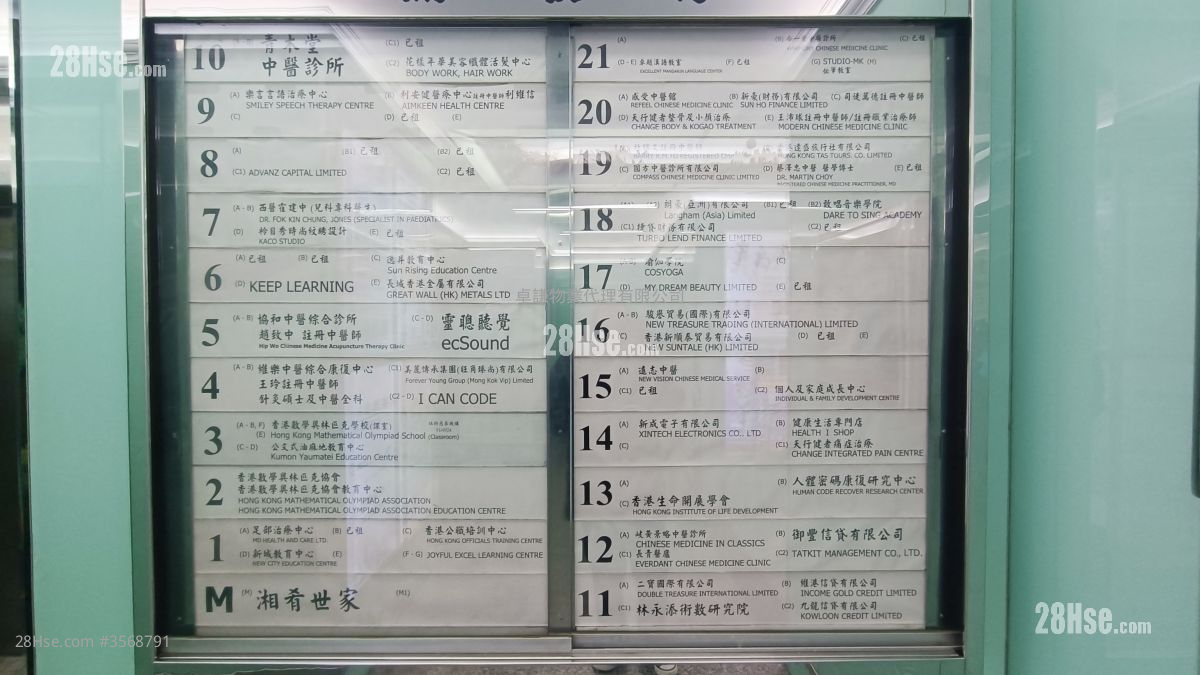 28Hse.com
10
青木堂
中醫診所
(C1) 已租
(C2) 花樣年華美容纖體活髮中心
BODY WORK, HAIR WORK
9
(A) 樂言言語治療中心
SMILEY SPEECH THERAPY CENTRE
(B) 利安健醫療中心註冊中醫師利維信
AIMKEEN HEALTH CENTRE
(C)
(D) 已租
(E)
8
(A)
(B1) 已租
(B2) 已租
(C1) ADVANZ CAPITAL LIMITED
(C2) 已租
7
(A-B) 西醫霍建中 (兒科專科醫生)
DR. FOK KIN CHUNG, JONES (SPECIALIST IN PAEDIATRICS)
(D) 衿目秀時尚紋繡設計
KACO STUDIO
(E) 已租
6
(A) 已租
(B) 已租
(C) 逸昇教育中心
Sun Rising Education Centre
(D) KEEP LEARNING
(E) 長城香港金屬有限公司
GREAT WALL (HK) METALS LTD
5
(A-B) 協和中醫綜合診所
趙致中 註冊中醫師
Hip Wo Chinese Medicine Acupuncture Therapy Clinic
(C-D) 靈聰聽覺
ecSound
4
(A-B) 維樂中醫綜合康復中心
王玲註冊中醫師
針灸碩士及中醫全科
(C1) 美麗傳承集團(旺角臻尚)有限公司
Forever Young Group (Mong Kok Vip) Limited
(C2-D) I CAN CODE
3
(A-B, F) 香港數學奧林匹克學校(課室)
(E) Hong Kong Mathematical Olympiad School (Classroom)
(C-D) 公文式油麻地教育中心
Kumon Yaumatei Education Centre
2
香港數學奧林匹克協會
香港數學奧林匹克協會教育中心
HONG KONG MATHEMATICAL OLYMPIAD ASSOCIATION
HONG KONG MATHEMATICAL OLYMPIAD ASSOCIATION EDUCATION CENTRE
1
(A) 足部治療中心
MD HEALTH AND CARE LTD.
(B) 已租
(C) 香港公職培訓中心
HONG KONG OFFICIALS TRAINING CENTRE
(D) 新城教育中心
NEW CITY EDUCATION CENTRE
(E)
(F-G) JOYFUL EXCEL LEARNING CENTRE
M
(M) 湘肴世家
(M1)
21
(A)
CHINESE MEDICINE CLINIC
(C) 已租
(D-E) 卓越漢語教室
EXCELLENT MANDARIN LANGUAGE CENTER
(F) 已租
(G) STUDIO-MK (M)
20
(A) 感受中醫館
REFEEL CHINESE MEDICINE CLINIC
(B) 新豪(財務)有限公司
SUN HO FINANCE LIMITED
(C) 司徒萬德註冊中醫師
(D) 天行健者整骨及小顏治療
CHANGE BODY & KOGAO TREATMENT
(E) 王沛瑔註冊中醫師/註冊職業治療師
MODERN CHINESE MEDICINE CLINIC
19
香港達盛旅行社有限公司
HONG KONG TAS TOURS. CO. LIMITED
(C) 圓方中醫診所有限公司
COMPASS CHINESE MEDICINE CLINIC LIMITED
(D) 蔡澤忠中醫 醫學博士
DR. MARTIN CHOY
REGISTERED CHINESE MEDICINE PRACTITIONER, MD
(E) 已租
18
朗豪(亞洲)有限公司
Langham (Asia) Limited
(B1) 已租
(B2) 敢唱音樂學院
DARE TO SING ACADEMY
(C1) 捷貸財務有限公司
TURBO LEND FINANCE LIMITED
(C2) 已租
17
瑜伽學院
COSYOGA
(C)
(D) MY DREAM BEAUTY LIMITED
(E) 已租
卓諾物業代理有限公司
16
(A-B) 駿譽貿易(國際)有限公司
NEW TREASURE TRADING (INTERNATIONAL) LIMITED
(C) 香港新順泰貿易有限公司
NEW SUNTALE (HK) LIMITED
(D) 已租
(E)
28Hse.com
15
(A) 遠志中醫
NEW VISION CHINESE MEDICAL SERVICE
(B)
(C1) 已租
(C2) 個人及家庭成長中心
INDIVIDUAL & FAMILY DEVELOPMENT CENTRE
14
(A) 新成電子有限公司
XINTECH ELECTRONICS CO., LTD
(B) 健康生活專門店
HEALTH I SHOP
(C)
(C1) 天行健者痛症治療
CHANGE INTEGRATED PAIN CENTRE
13
(A)
(B) 人體密碼康復研究中心
HUMAN CODE RECOVER RESEARCH CENTER
(C) 香港生命開展學會
HONG KONG INSTITUTE OF LIFE DEVELOPMENT
12
(A) 岐黃景略中醫診所
CHINESE MEDICINE IN CLASSICS
(B) 御豐信貸有限公司
(C1) 長青醫廬
EVERDANT CHINESE MEDICINE CLINIC
(C2) TATKIT MANAGEMENT CO., LTD.
11
(A) 二寶國際有限公司
DOUBLE TREASURE INTERNATIONAL LIMITED
(B) 維港信貸有限公司
INCOME GOLD CREDIT LIMITED
(C1) 林永添術數研究院
(C2) 九龍信貸有限公司
KOWLOON CREDIT LIMITED
28Hse.com #3568791
28Hse.com